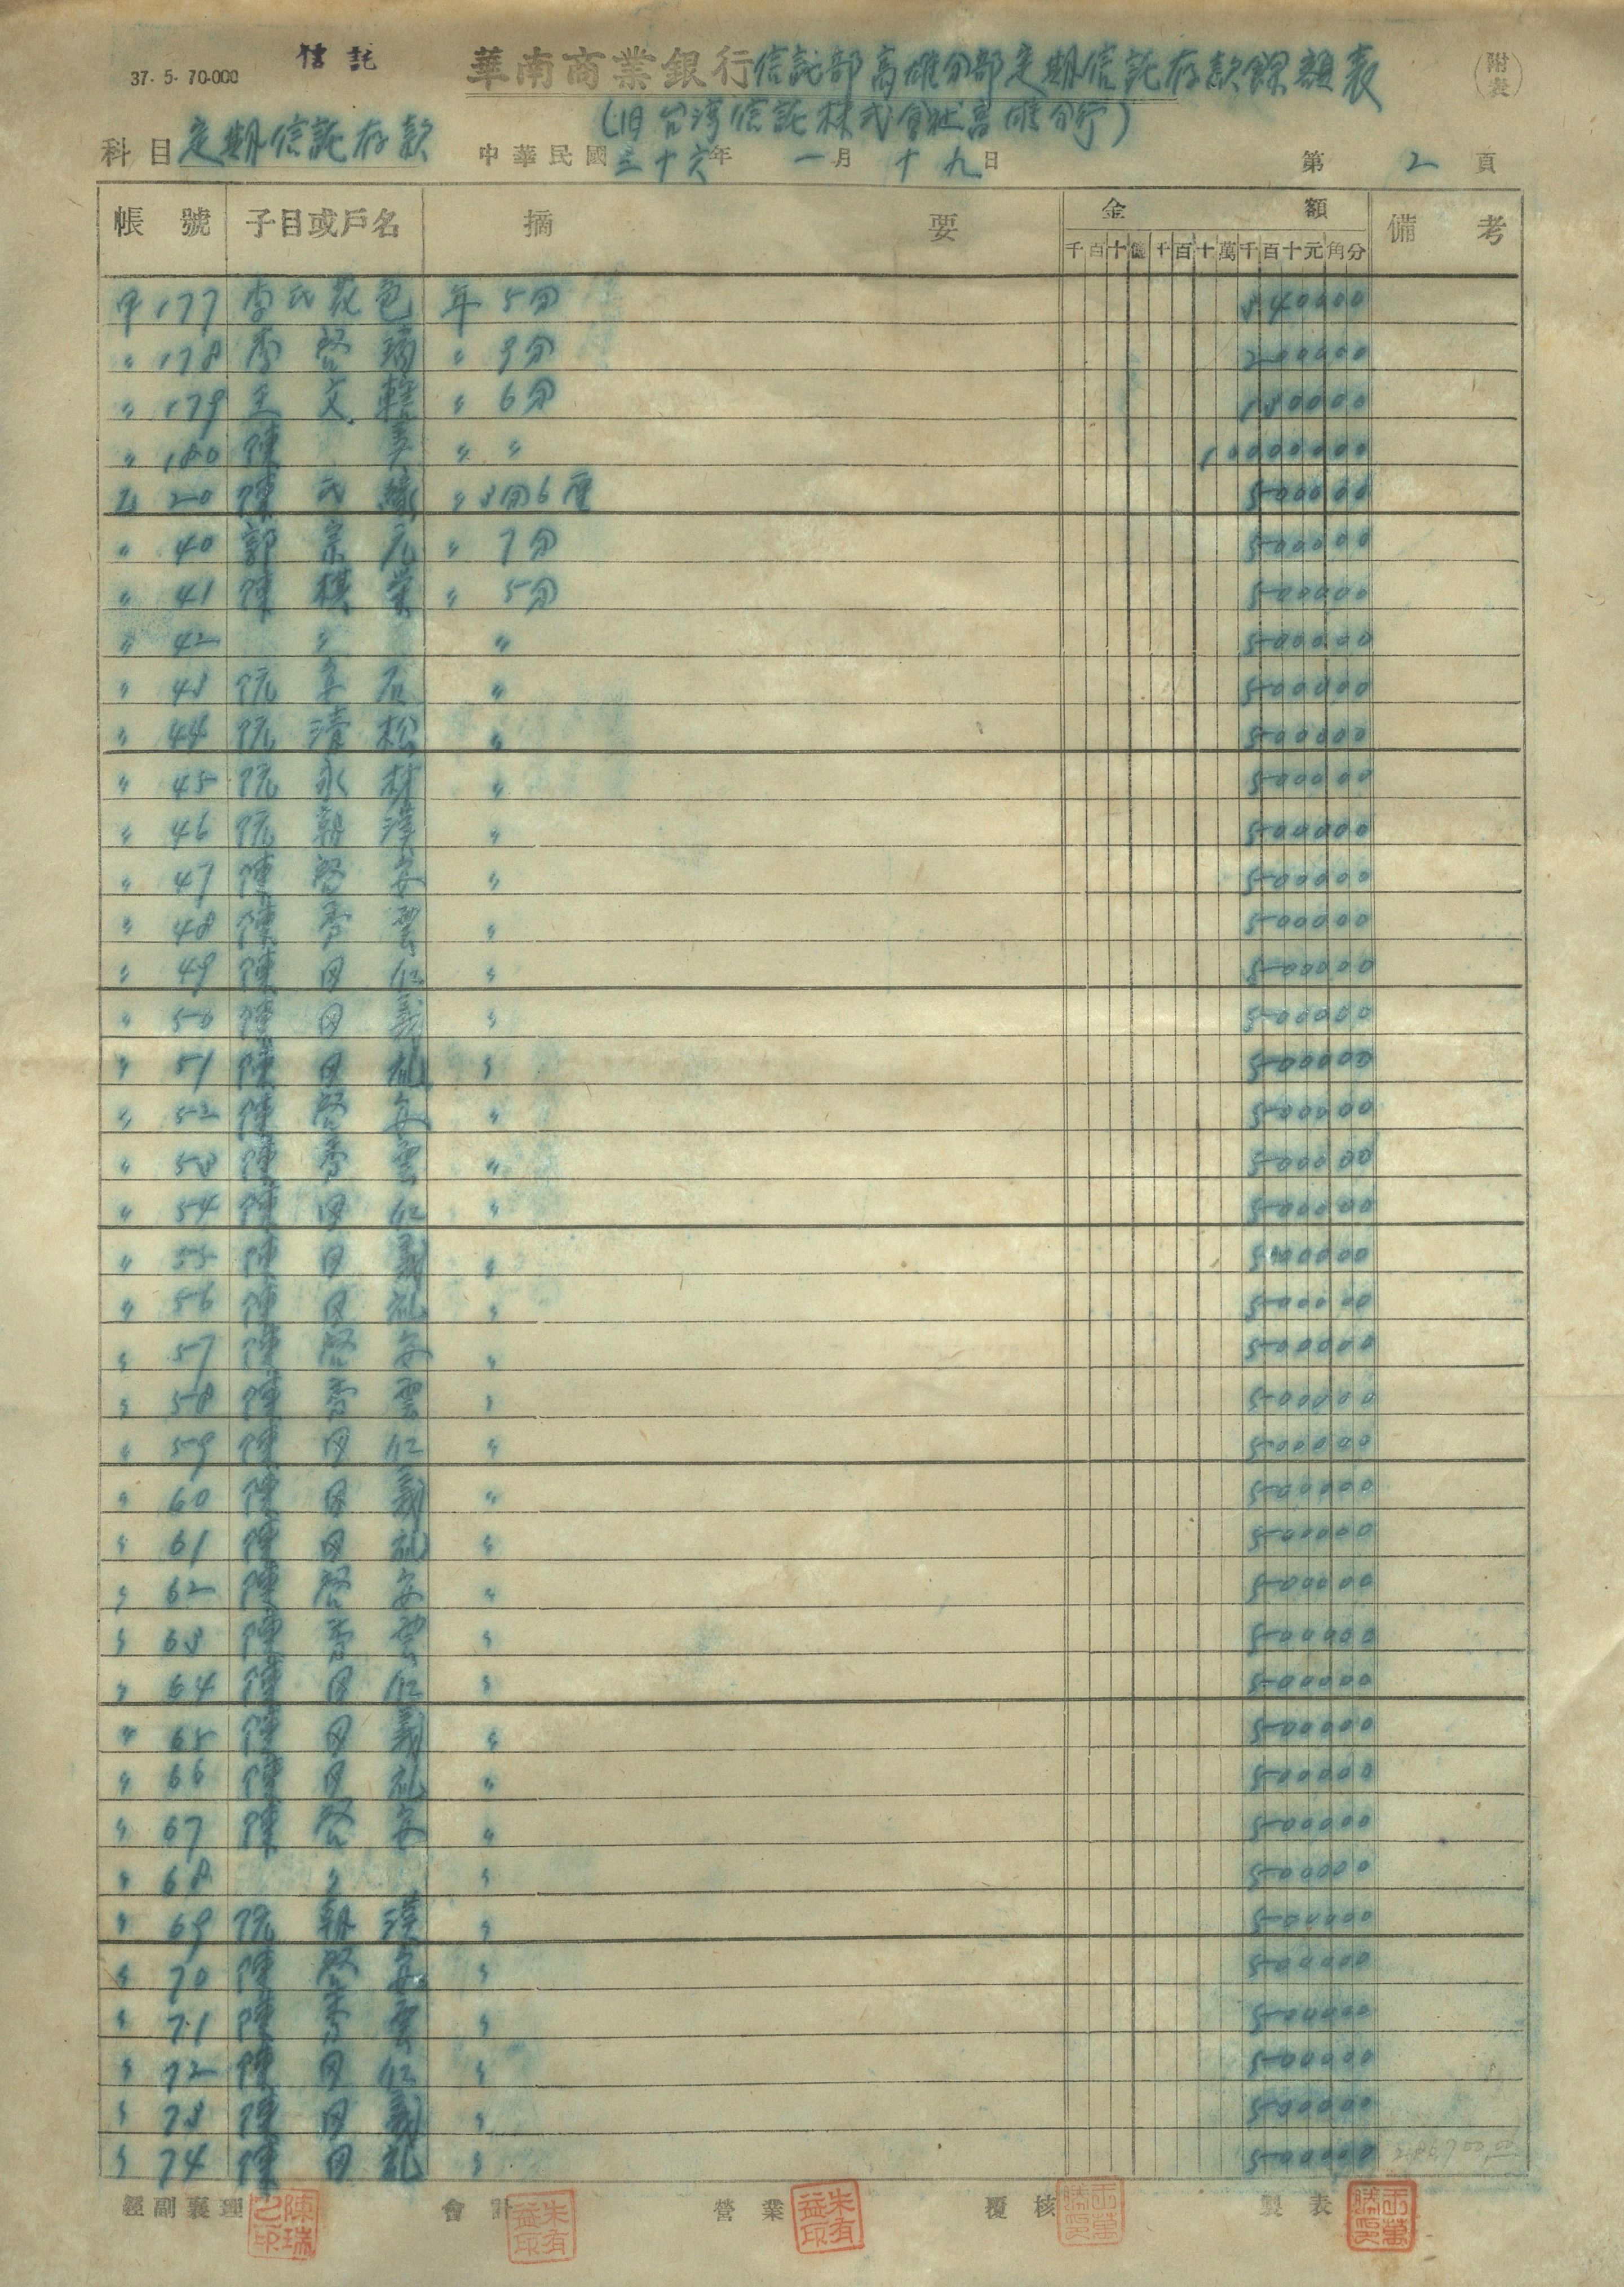 37. 5. 70.000
信託
華南商業銀行信託部高雄分部定期信託存款餘額表
附表
(旧台湾信託株式会社高雄分行)
科目 定期信託存款 中華民國三十六年一月十九日 第2頁
帳號 子目或戶名 摘要 金額 備考
千百十億千百十萬千百十元角分
甲177 李氏 色 年5分 840000
〃178 李啓 〃9分 200000
〃179 王文 〃6分 180000
〃180 陳 〃〃 10000000
乙20 陳氏緣 〃3分6厘 500000
〃40 郭宗元 〃7分 500000
〃41 陳棋榮 〃5分 500000
〃42 〃 〃 500000
〃43 阮 石 〃 500000
〃44 阮清松 〃 500000
〃45 阮永材 〃 500000
〃46 阮朝漢 〃 500000
〃47 陳啓安 〃 500000
〃48 陳 雲 〃 500000
〃49 陳田仁 〃 500000
〃50 陳田義 〃 500000
〃51 陳田礼 〃 500000
〃52 陳啓安 〃 500000
〃53 陳 雲 〃 500000
〃54 陳田仁 〃 500000
〃55 陳田義 〃 500000
〃56 陳田礼 〃 500000
〃57 陳啓安 〃 500000
〃58 陳 雲 〃 500000
〃59 陳田仁 〃 500000
〃60 陳田義 〃 500000
〃61 陳田礼 〃 500000
〃62 陳啓安 〃 500000
〃63 陳 雲 〃 500000
〃64 陳田仁 〃 500000
〃65 陳田義 〃 500000
〃66 陳田礼 〃 500000
〃67 陳啓安 〃 500000
〃68 〃 〃 500000
〃69 阮朝漢 〃 500000
〃70 陳啓安 〃 500000
〃71 陳 雲 〃 500000
〃72 陳田仁 〃 500000
〃73 陳田義 〃 500000
〃74 陳田礼 〃 500000
經副襄理 會計 營業 覆核 製表
朱有益印
朱有益印